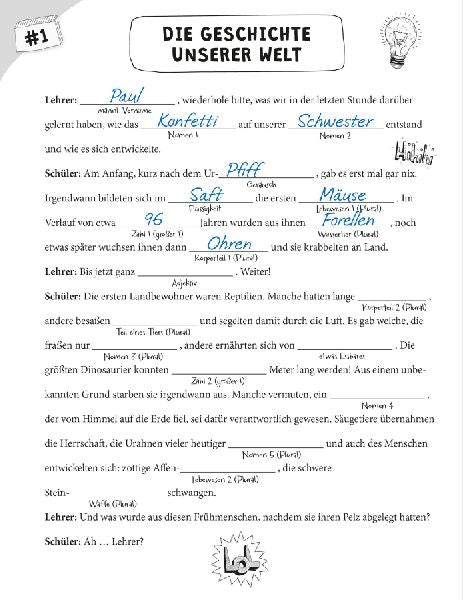 #1
DIE GESCHICHTE
UNSERER WELT
Lehrer: Paul, wiederhole bitte, was wir in der letzten Stunde darüber
männl. Vorname
gelernt haben, wie das Konfetti auf unserer Schwester entstand
Nomen 1 Nomen 2
und wie es sich entwickelte.
Schüler: Am Anfang, kurz nach dem Ur-Pfiff, gab es erst mal gar nix.
Geräusch
Irgendwann bildeten sich im Saft die ersten Mäuse. Im
Flüssigkeit Lebewesen 1 (Plural)
Verlauf von etwa 96 Jahren wurden aus ihnen Forellen, noch
Zahl 1 (größer 1) Wassertier (Plural)
etwas später wuchsen ihnen dann Ohren und sie krabbelten an Land.
Körperteil 1 (Plural)
Lehrer: Bis jetzt ganz ____. Weiter!
Adjektiv
Schüler: Die ersten Landbewohner waren Reptilien. Manche hatten lange ____,
Körperteil 2 (Plural)
andere besaßen ____ und segelten damit durch die Luft. Es gab welche, die
Teil eines Tiers (Plural)
fraßen nur ____, andere ernährten sich von ____. Die
Nomen 3 (Plural) etwas Essbares
größten Dinosaurier konnten ____ Meter lang werden! Aus einem unbe-
Zahl 2 (größer 1)
kannten Grund starben sie irgendwann aus. Manche vermuten, ein ____,
Nomen 4
der vom Himmel auf die Erde fiel, sei dafür verantwortlich gewesen. Säugetiere übernahmen
die Herrschaft, die Urahnen vieler heutiger ____ und auch des Menschen
Nomen 5 (Plural)
entwickelten sich: zottige Affen-____, die schwere
Lebewesen 2 (Plural)
Stein-____ schwangen.
Waffe (Plural)
Lehrer: Und was wurde aus diesen Frühmenschen, nachdem sie ihren Pelz abgelegt hatten?
Schüler: Äh … Lehrer?
LOL